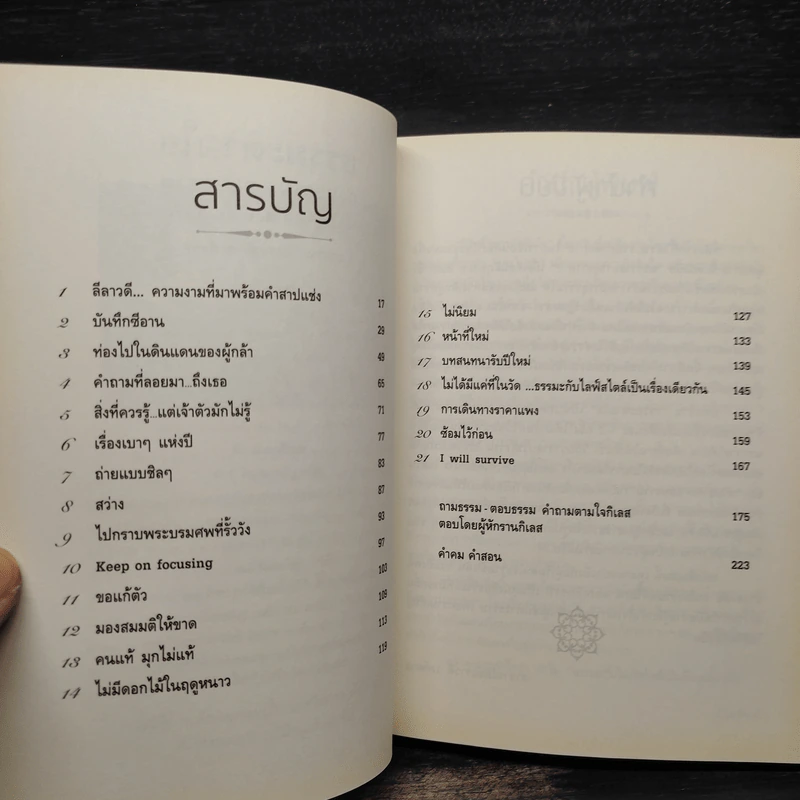 สารบัญ
1 ลีลาวดี... ความงามที่มาพร้อมคำสาปแช่ง 17
2 บันทึกซีอาน 29
3 ท่องไปในดินแดนของผู้กล้า 49
4 คำถามที่ลอยมา...ถึงเธอ 65
5 สิ่งที่ควรรู้...แต่เจ้าตัวมักไม่รู้ 71
6 เรื่องเบาๆ แห่งปี 77
7 ถ่ายแบบชิลๆ 83
8 สว่าง 87
9 ไปกราบพระบรมศพที่รั้ววัง 93
10 Keep on focusing 97
11 ขอแก้ตัว 103
12 มองสมมติให้ขาด 109
13 คนแท้ มุกไม่แท้ 113
14 ไม่มีดอกไม้ในฤดูหนาว 119
15 ไม่นิยม 127
16 หน้าที่ใหม่ 133
17 บทสนทนารับปีใหม่ 139
18 ไม่ได้มีแค่ที่ในวัด ...ธรรมะกับไลฟ์สไตล์เป็นเรื่องเดียวกัน 145
19 การเดินทางราคาแพง 153
20 ซ้อมไว้ก่อน 159
21 I will survive 167
ถามธรรม - ตอบธรรม คำถามตามใจกิเลส 175
ตอบโดยผู้หักรานกิเลส
คำคม คำสอน 223